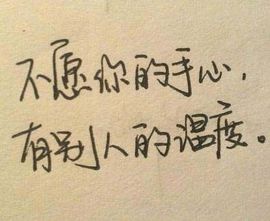 不愿你的手心，
有别人的温度。